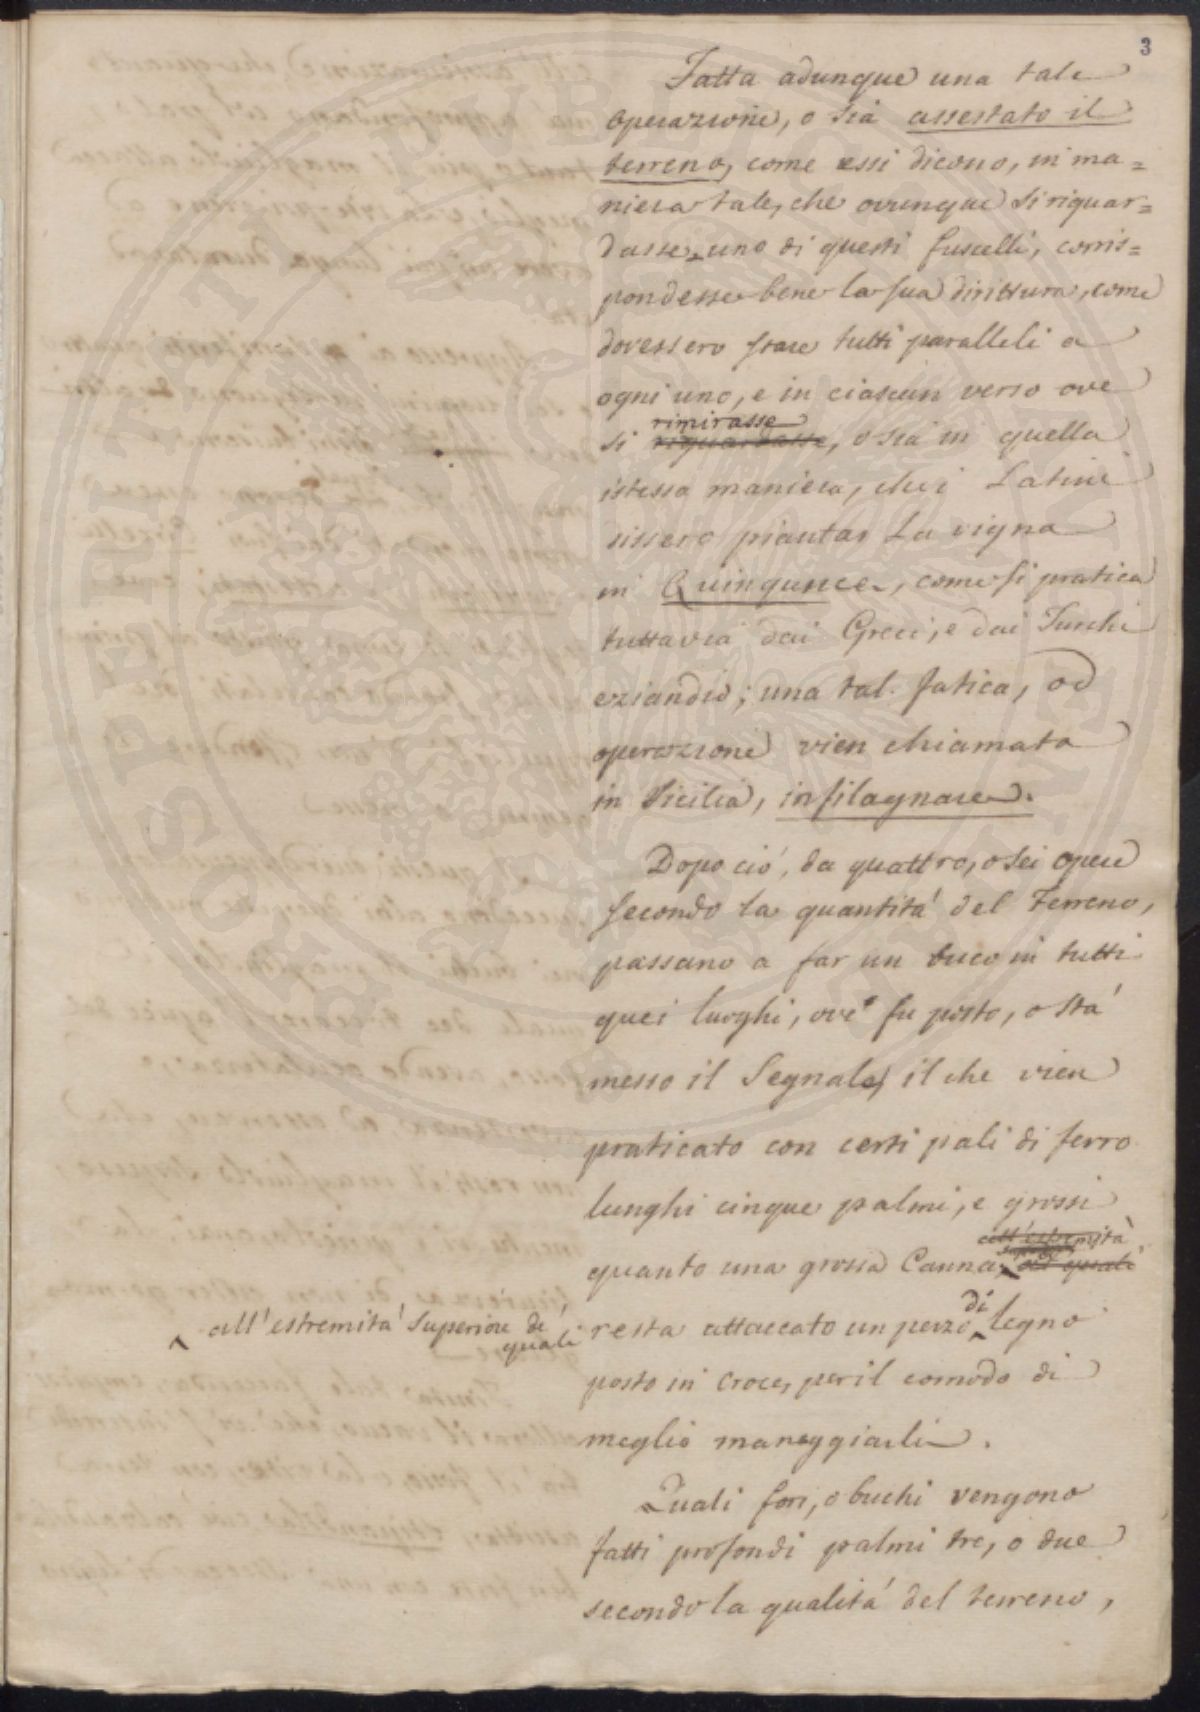 3
Fatta adunque una tale
operazione, o sia assestato il
terreno, come essi dicono, in ma=
niera tale, che ovunque si riguar=
dasse uno di questi fuscelli, corris=
pondesse bene la sua dirittura, come
dovessero stare tutti paralleli a
ogni uno, e in ciascun verso ove
rimirasse
si riguardasse, o sia in quella
istessa maniera, che i Latini
dissero piantar La vigna
in Quinqunce, come si pratica
tuttavia dai Greci, e dai Turchi
eziandio; una tal fatica, od
operazione vien chiamata
in Sicilia, infilagnare.
Dopo ció, da quattro, o sei opere
secondo la quantitá del Terreno,
passano a far un buco in tutti
quei luoghi, ove fu posto, o stá
messo il Segnale, il che vien
praticato con certi pali di ferro
lunghi cinque palmi, e grossi
all'estremitá
quanto una grossa Canna, ai quali
all'estremitá Superiore de quali
di
resta attaccato un pezzo legno
posto in Croce, per il comodo di
meglio maneggiarli.
Quali fori, o buchi vengono
fatti profondi palmi tre, o due
secondo la qualitá del terreno,
PROSPERITATI PVBLICAE